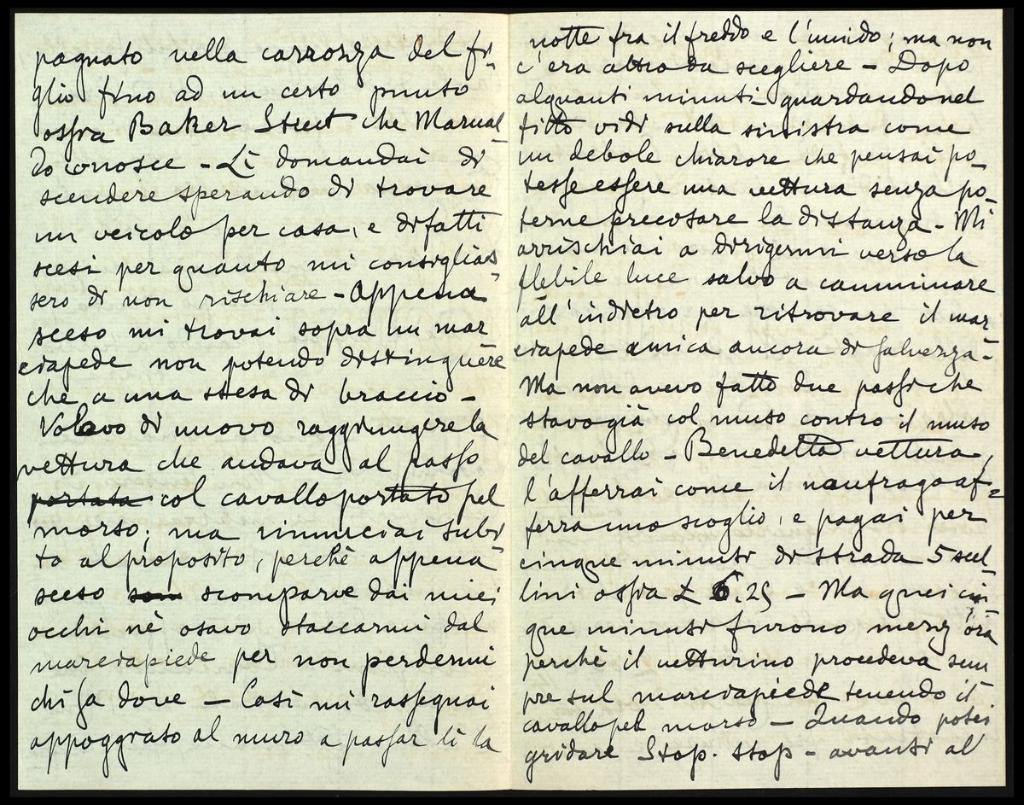 pagnato nella carrozza del fi-
glio fino ad un certo punto
ossia Baker Street che Manual
Do conosce - Lì domandai di
scendere sperando di trovare
un veicolo per casa, e difatti
scesi per quanto mi consiglias-
sero di non rischiare - Appena
sceso mi trovai sopra un mar
ciapede non potendo distinguere
che a una stesa di braccio -
Volevo di nuovo raggiungere la
vettura che andava al passo
portata col cavallo portato pel
morso; ma rinunciai subi
to al proposito, perchè appena
sceso som scomparve dai miei
occhi nè osavo staccarmi dal
marciapiede per non perdermi
chi sa dove - Così mi rassegnai
appoggiato al muro a passar lì la
notte fra il freddo e l'umido; ma non
c'era altro da scegliere - Dopo
alquanti minuti guardando nel
fitto vidi sulla sinistra come
un debole chiarore che pensai po-
tesse essere una vettura senza po-
terne precisare la distanza - Mi
arrischiai a dirigermi verso la
flebile luce salvo a camminare
all'indietro per ritrovare il mar
ciapede amica ancora di salvezza -
Ma non avevo fatto due passi che
stavo già col muso contro il muso
del cavallo - Benedetta vettura,
l'afferrai come il naufrago af=
ferra uno scoglio, e pagai per
cinque minuti di strada 5 scel
lini ossia £ 6.25 - Ma quei cin
que minuti furono mezz'ora
perchè il vetturino procedeva sem
pre sul marciapiede tenendo il
cavallo pel morso - Quando potei
gridare Stop. Stop - avanti al